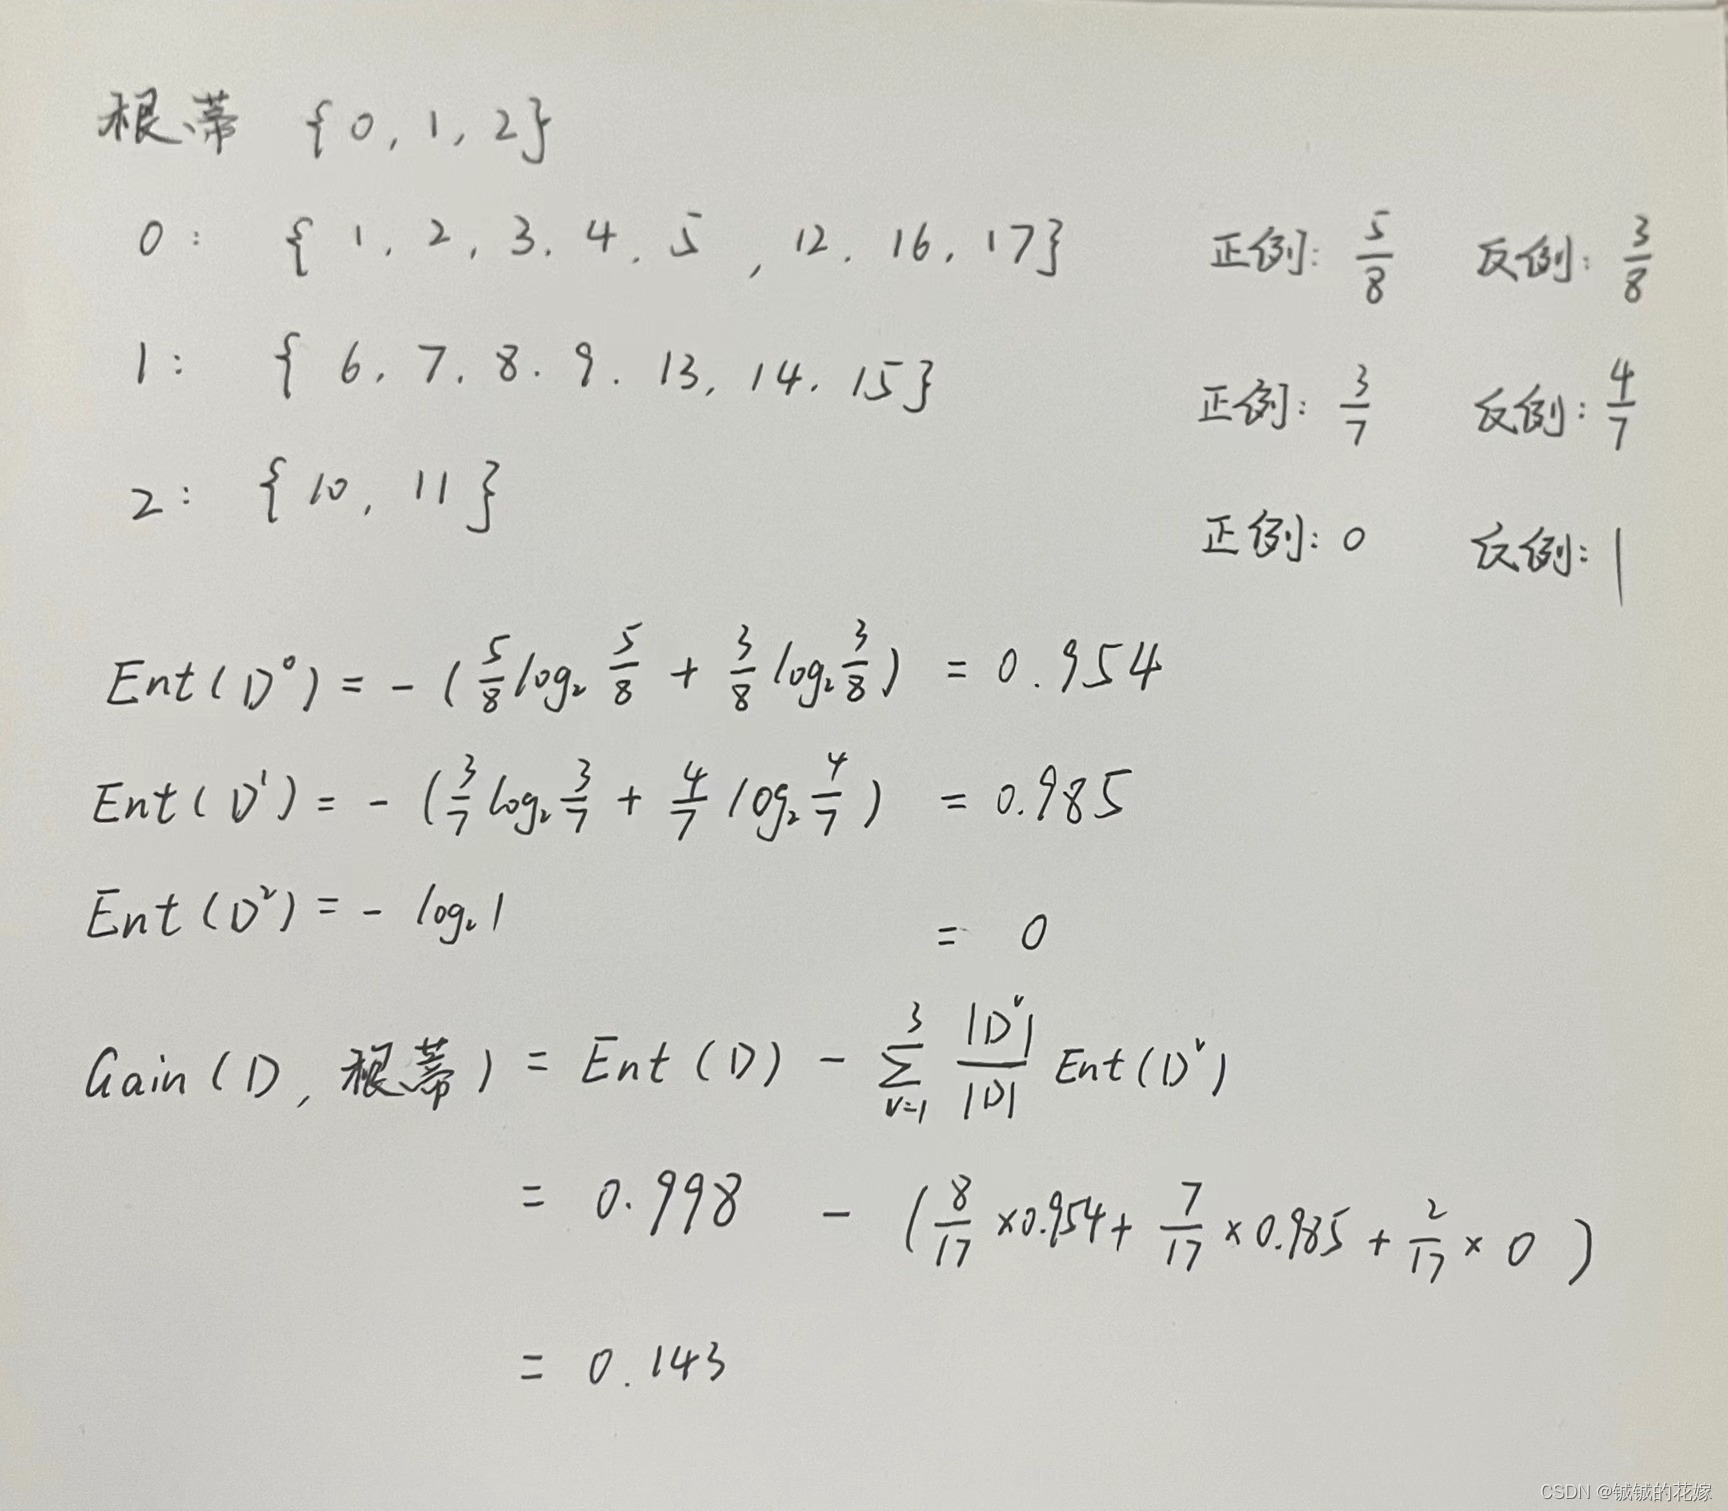 根蒂 {0, 1, 2}
0: {1, 2, 3, 4, 5, 12, 16, 17} 正例: 5/8 反例: 3/8
1: {6, 7, 8, 9, 13, 14, 15} 正例: 3/7 反例: 4/7
2: {10, 11} 正例: 0 反例: 1
Ent(D⁰) = -(5/8 log₂ 5/8 + 3/8 log₂ 3/8) = 0.954
Ent(D¹) = -(3/7 log₂ 3/7 + 4/7 log₂ 4/7) = 0.985
Ent(D²) = - log₂ 1 = 0
Gain(D, 根蒂) = Ent(D) - ∑_{v=1}^{3} |Dᵛ|/|D| Ent(Dᵛ)
= 0.998 - (8/17 × 0.954 + 7/17 × 0.985 + 2/17 × 0)
= 0.143
CSDN @铖铖的花嫁